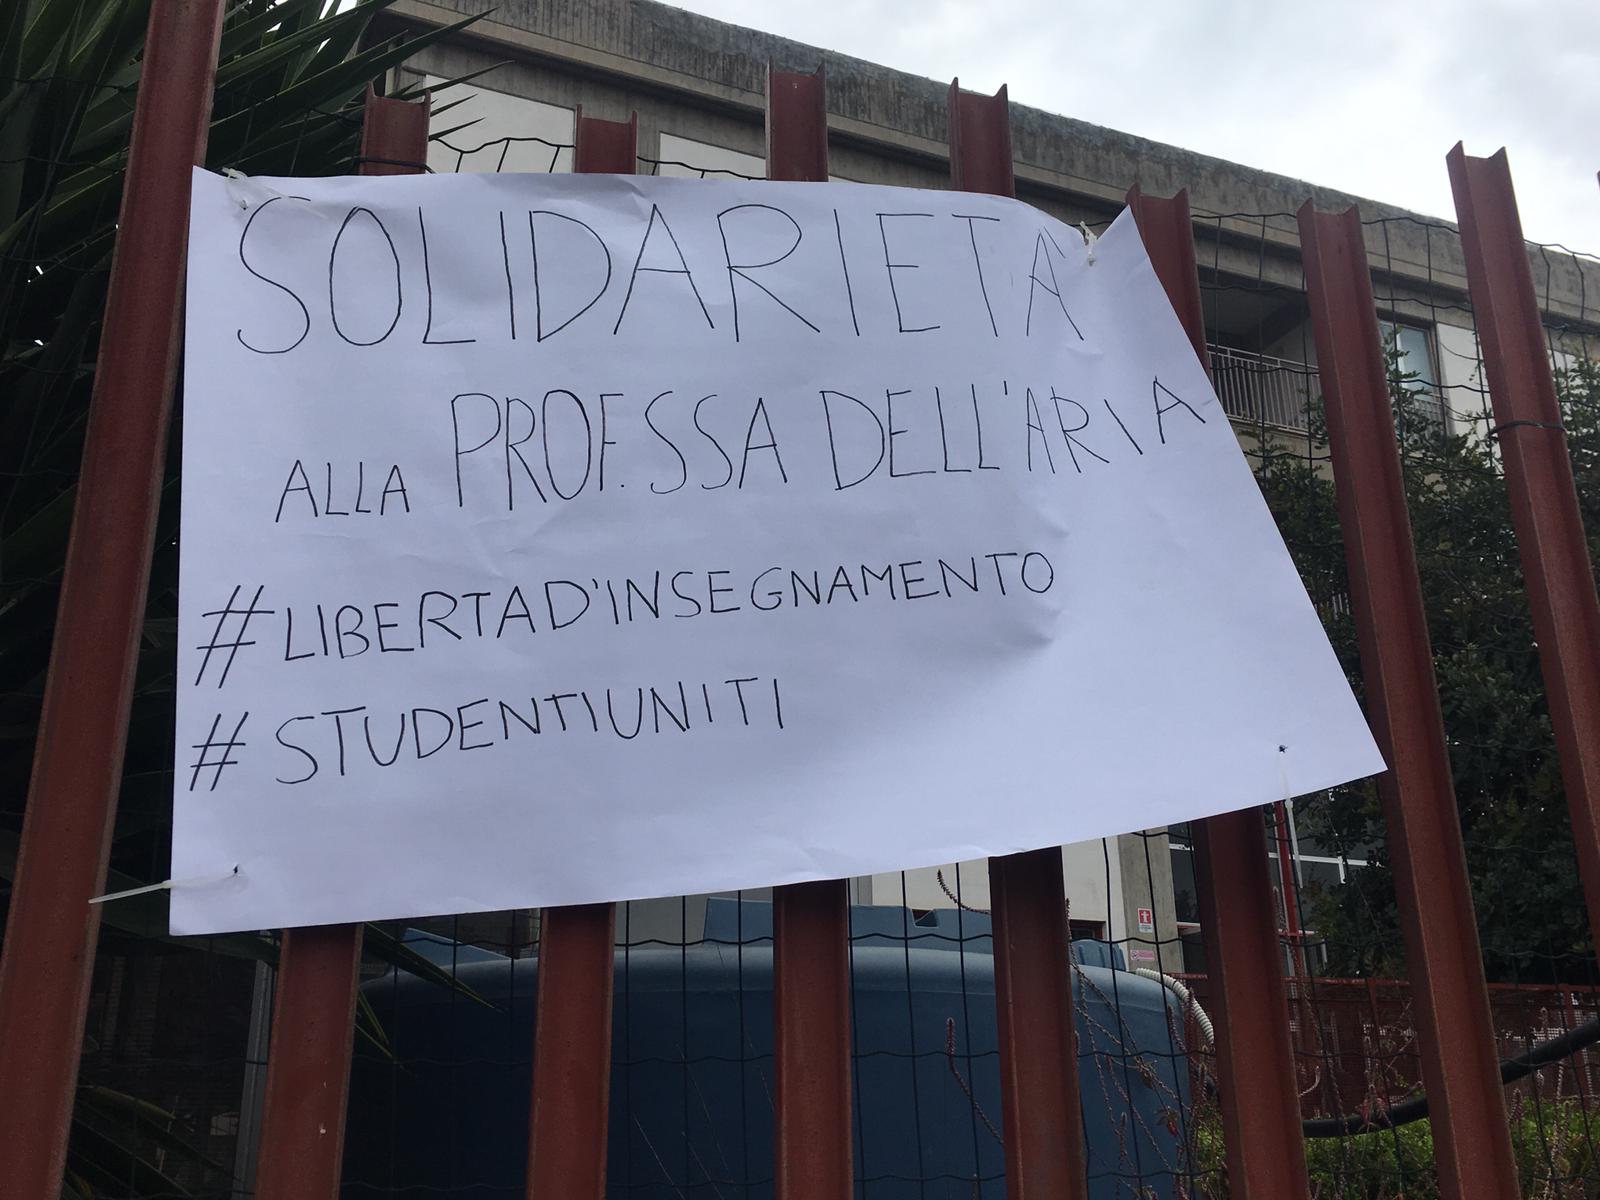 SOLIDARIETÀ
ALLA PROF.SSA DELL'ARIA
#LIBERTAD'INSEGNAMENTO
#STUDENTIUNITI